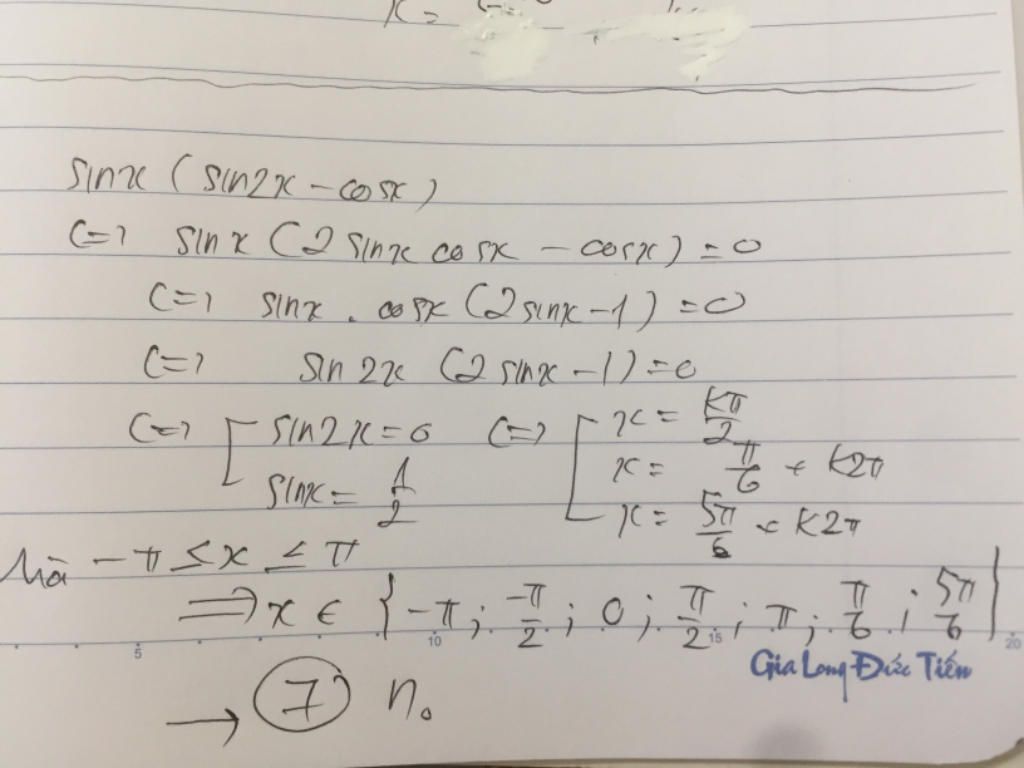 x =
sinx (sin2x - cosx)
<=> sinx (2 sinx cosx - cosx) = 0
<=> sinx . cosx (2sinx-1) = 0
<=> sin2x (2sinx-1) = 0
<=> [ sin2x = 0 <=> [ x = kπ/2
sinx = 1/2 x = π/6 + k2π
x = 5π/6 + k2π
Mà -π ≤ x ≤ π
=> x ∈ {-π; -π/2; 0; π/2; π; π/6; 5π/6}
5 10 15 20
Gia Long Đức Tiến
→ 7 no